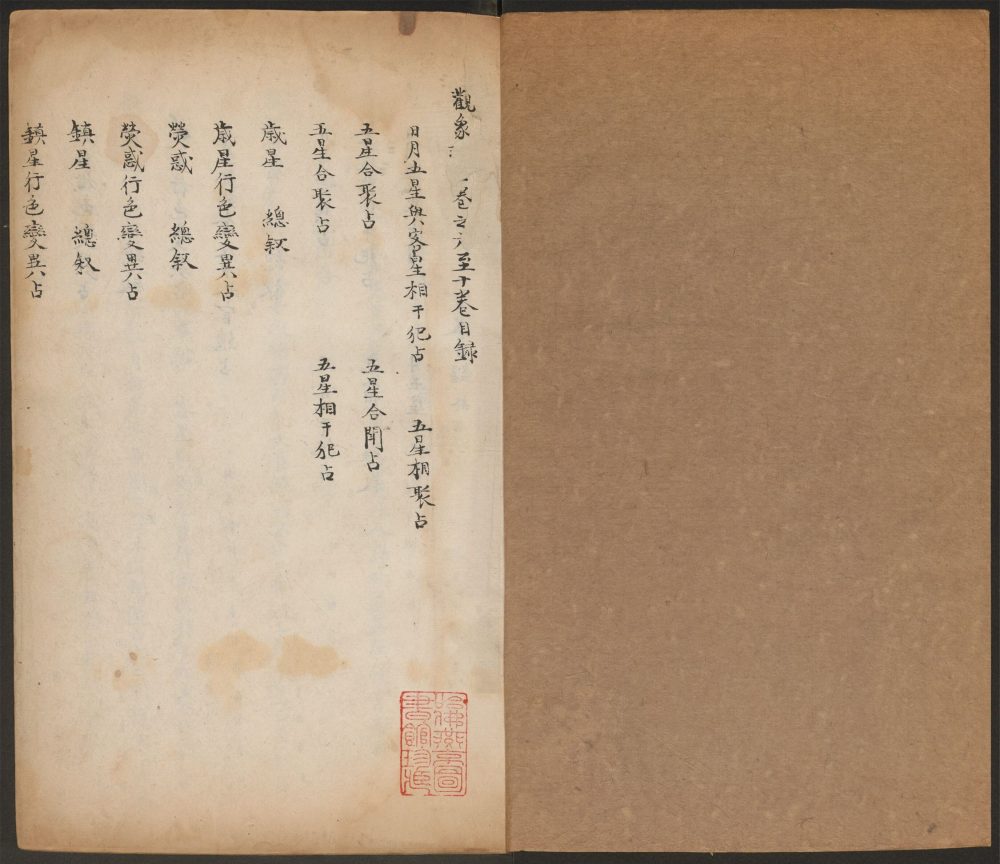 觀象 卷之六至十卷目錄
日月五星與客星相干犯占 五星相聚占
五星合聚占 五星合鬥占
五星合聚占 五星相干犯占
歲星 總叙
歲星行色變異占
熒惑 總叙
熒惑行色變異占
鎮星 總叙
鎮星行色變異占
哈佛燕京圖書館珍藏